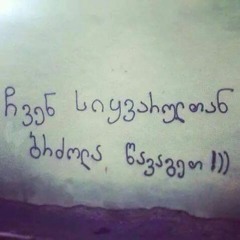 ჩვენ სიყვარულთან
ბრძოლა წავაგეთ !)))